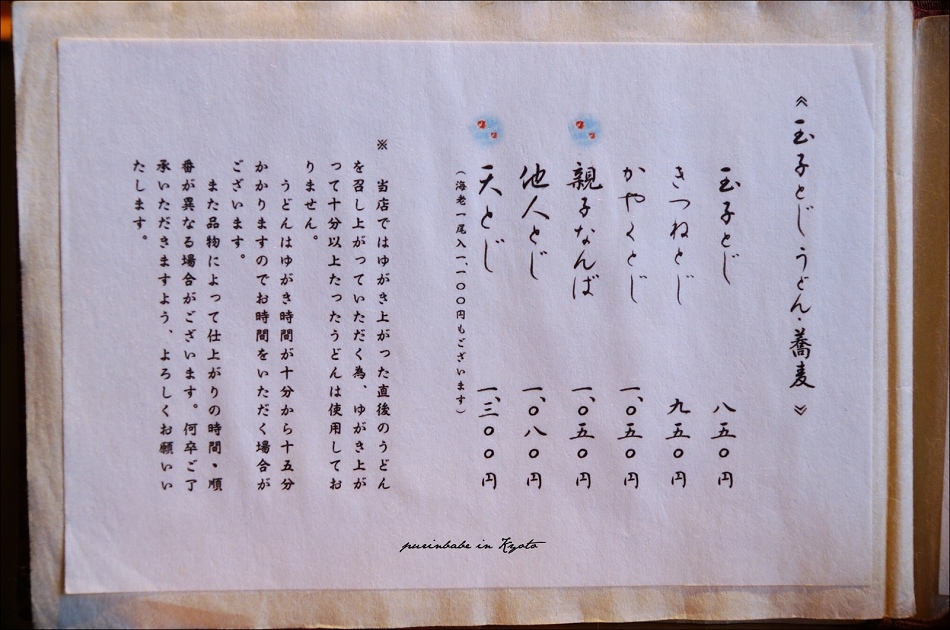 ≪玉子とじうどん・蕎麦≫
玉子とじ 八五〇円
きつねとじ 九五〇円
かやくとじ 一、〇五〇円
親子なんば 一、〇五〇円
他人とじ 一、〇八〇円
天とじ 一、三〇〇円
（海老一尾入一、一〇〇円もございます）
※ 当店ではゆがき上がった直後のうどん
を召し上がっていただく為、ゆがき上が
って十分以上たったうどんは使用してお
りません。
うどんはゆがき時間が十分から十五分
かかりますのでお時間をいただく場合が
ございます。
また品物によって仕上がりの時間・順
番が異なる場合がございます。何卒ご了
承いただきますよう、よろしくお願いい
たします。
purinbabe in Kyoto